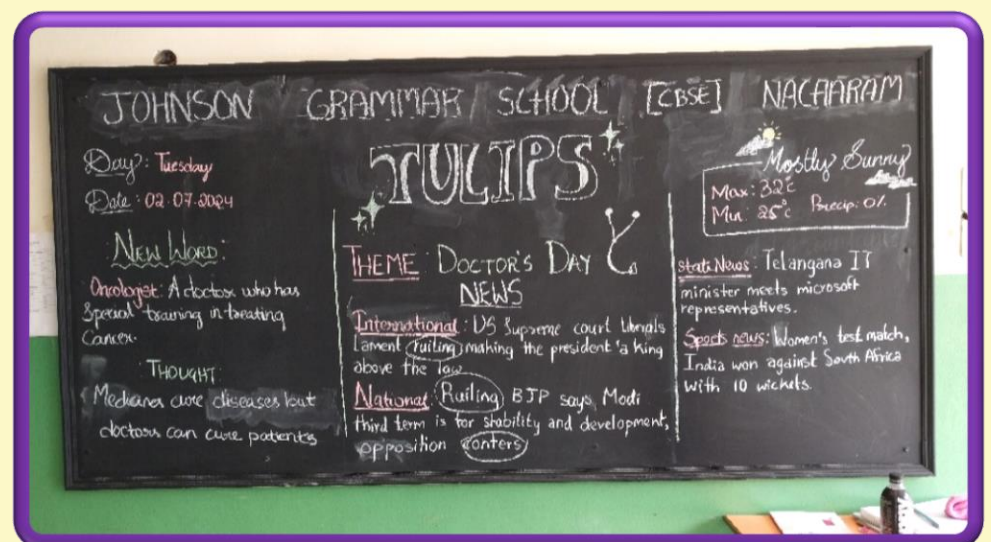 JOHNSON GRAMMAR SCHOOL [CBSE] NACHARAM
Day: Tuesday
Date: 02.07.2024
NEW WORD:
Oncologist: A doctor who has
special training in treating
Cancer.
THOUGHT:
Medicines cure diseases but
doctors can cure patients
TULIPS
THEME: DOCTOR'S DAY
NEWS
International: US Supreme court liberals
lament ruiling making the president 'a king
above the law
National: Ruiling BJP says, Modi
third term is for stability and development,
opposition conters
Mostly Sunny
Max: 32°c
Min: 25°c Precip: 0%
State News: Telangana IT
minister meets microsoft
representatives.
Sports news: Women's test match,
India won against South Africa
with 10 wickets.